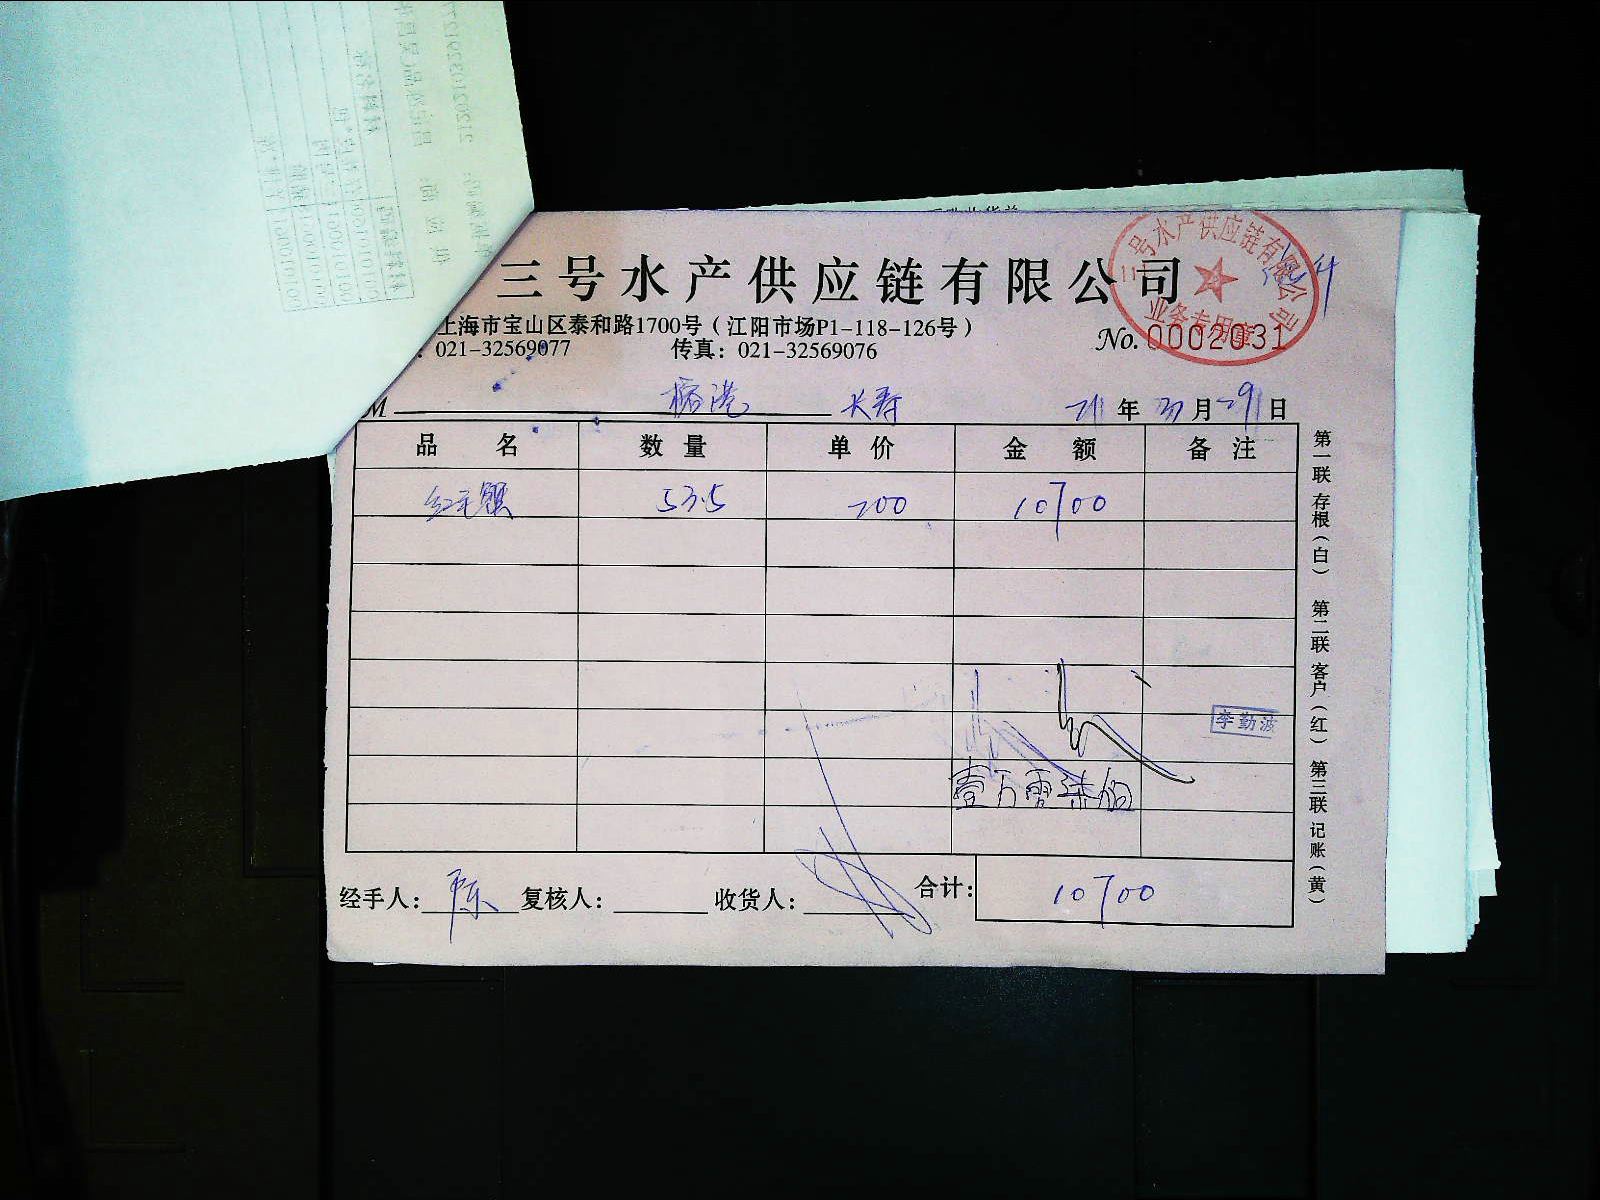 三号水产供应链有限公司
三号水产供应链有限公司
业务专用章
上海市宝山区泰和路1700号（江阳市场P1-118-126号）
：021-32569077 传真：021-32569076 No. 0002031
M 大寿 21年3月29日
品名 数量 单价 金额 备注
红毛蟹 53.5 200 10700
李勤波
壹万零柒佰
经手人： 陈 复核人： 收货人： 合计： 10700
第一联 存根（白） 第二联 客户（红） 第三联 记账（黄）